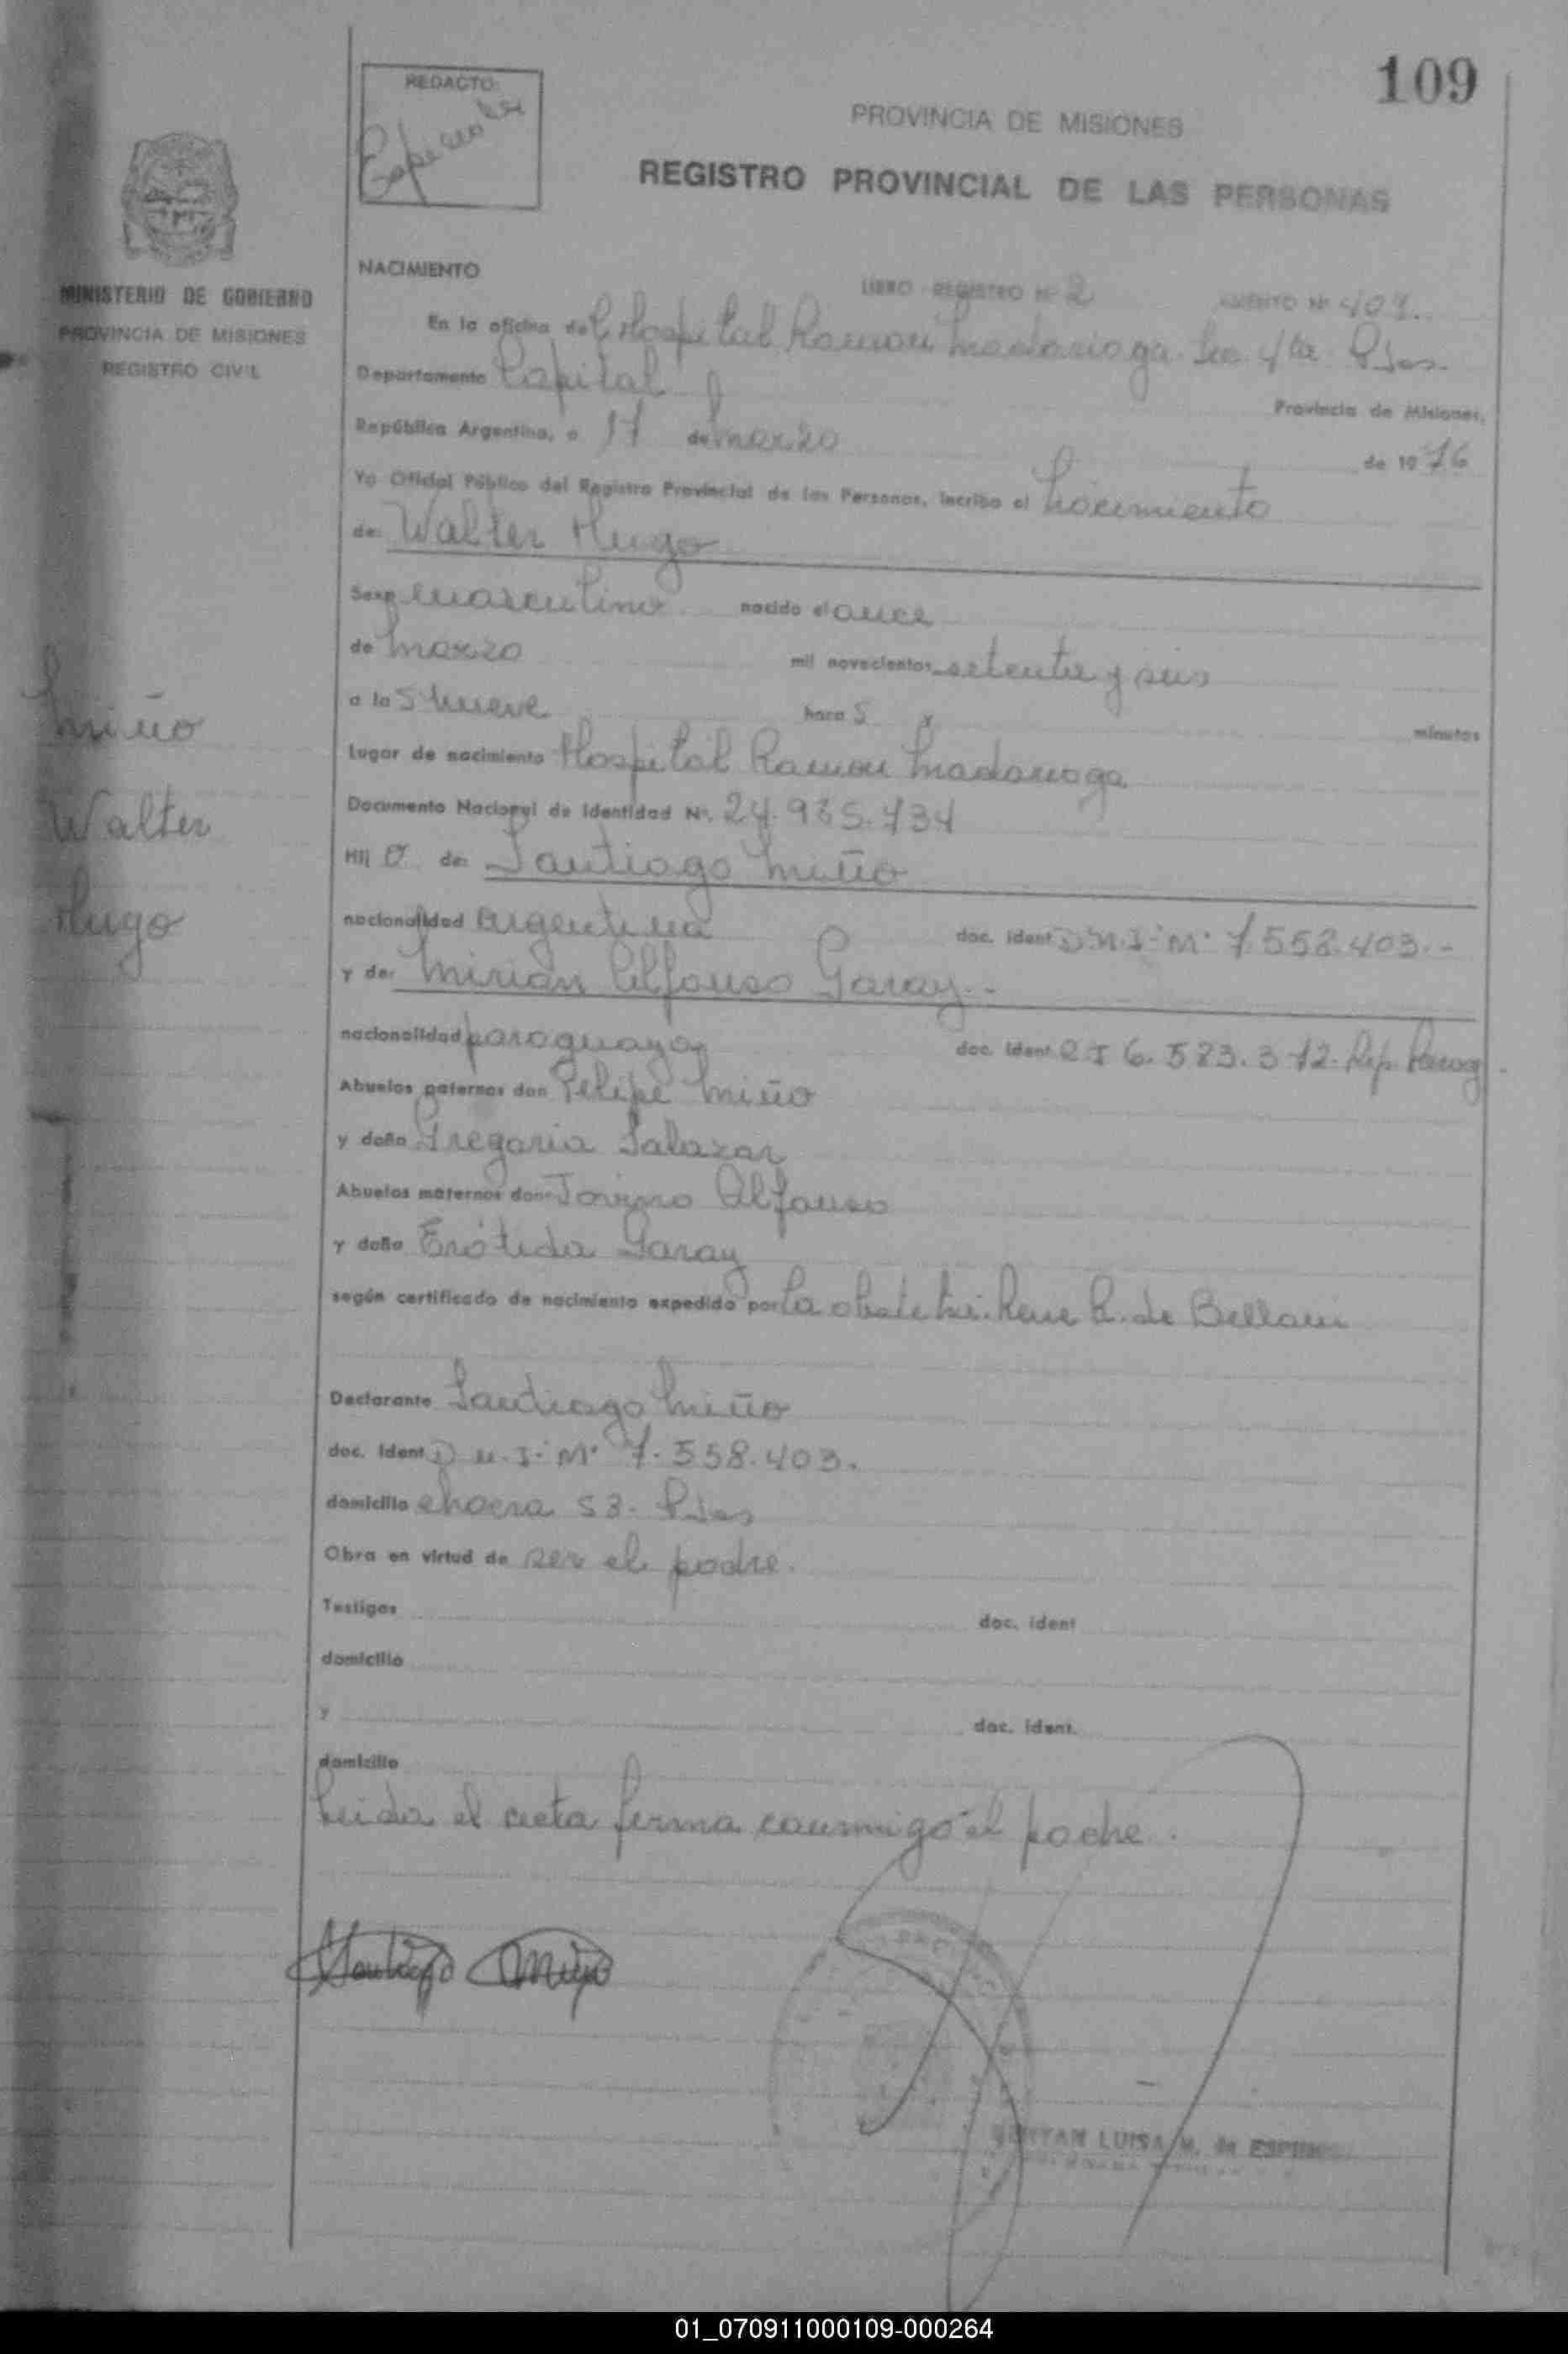 109
REDACTO:
PROVINCIA DE MISIONES
REGISTRO PROVINCIAL DE LAS PERSONAS
MINISTERIO DE GOBIERNO
PROVINCIA DE MISIONES
REGISTRO CIVIL
NACIMIENTO
LIBRO REGISTRO Nº 2
En la oficina del Hospital Ramon Madariaga
Departamento Capital Provincia de Misiones,
República Argentina, a 17 de marzo de 1976
Yo Oficial Público del Registro Provincial de las Personas, incribo el Nacimiento
de: Walter Hugo
Sexo masculino nacido el once
de Marzo mil novecientos setenta y seis
a las nueve horas minutos
Lugar de nacimiento Hospital Ramon Madariaga
Documento Nacional de Identidad Nº. 24.935.434
Miño
Walter
Hugo
Hijo de: Santiago Miño
nacionalidad argentina doc. ident D.N.I. Mº 7.558.403.-
y de: Mirian Alfonso Garay.-
nacionalidad paraguaya doc. ident. 6.583.372. Rep. Parag
Abuelos paternos don Felipe Miño
y doña Gregoria Salazar
Abuelos maternos don Alfonso
y doña Erótida Garay
según certificado de nacimiento expedido por La obstetri. Rene R. de
Declarante Santiago Miño
doc. ident D.N.I. Mº 7.558.403.
domicilio chacra 53. Pdas
Obra en virtud de ser el padre.
Testigos doc. ident
domicilio
y doc. ident.
domicilio
Leida el acta firma conmigo el padre.
Santiago Miño
LUISA M. de
01_070911000109-000264